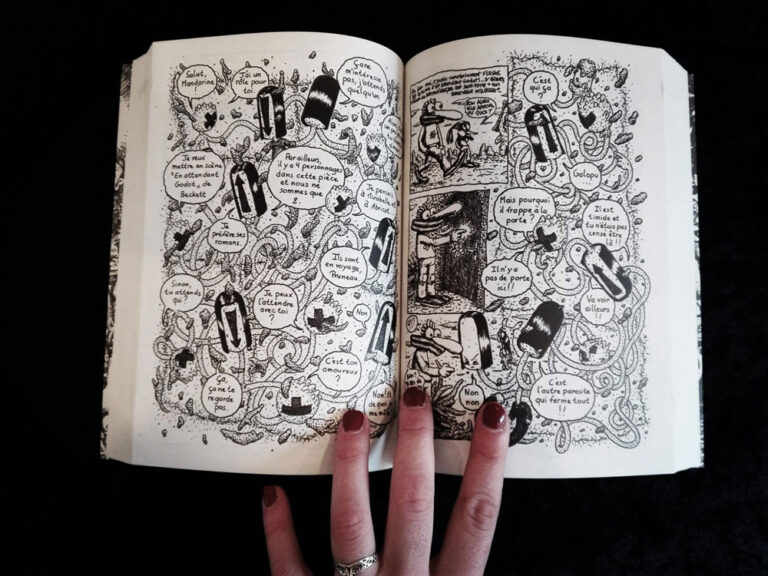 Salut,
Mandarine
J'ai un
rôle pour
toi.
Ça ne
m'intéresse
pas, j'attends
quelqu'un.
Je veux
mettre en scène
"En attendant
Godot" de
Beckett
Par ailleurs,
il y a 4 personnages
dans cette pièce
et nous ne
sommes que
2.
Je pensais
à Mirabelle et
à Abricot.
Je préfère ses
romans.
Ils sont
en voyage,
Pruneau.
Sinon,
tu attends
qui?
Je peux
l'attendre
avec toi
?
Non
C'est ton
amoureux
?
Ça
ça ne te
regarde
pas.
Non
de quoi
C'est
qui ça
?
Galopu
Mais pourquoi
il frappe à la
porte?
Il est
timide et
tu n'étais pas
censé être
là!!
Il n'y a
pas de porte
ici!!
Va voir
ailleurs
!!
Non
non
C'est
l'autre parasite
qui ferme tout
!!